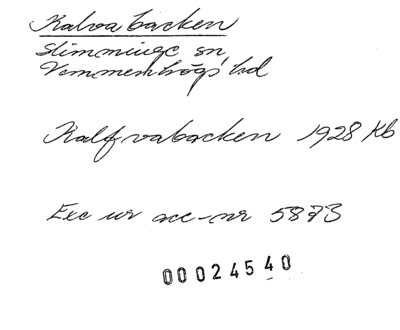 Kalvabacken
Slimminge sn
Vemmenhögs hd
Kalfvabacken 1928 Kb
Exc ur acc-nr 5873
00024540